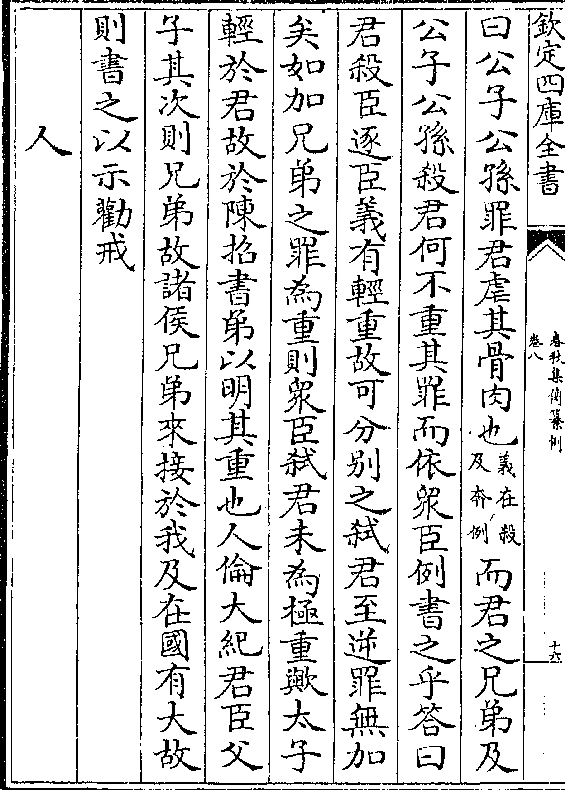 欽定四庫全書
春秋集傳纂例
卷八
十六
曰公子公孫罪君虐其骨肉也義在殺及奔例而君之兄弟及
公子公孫殺君何不重其罪而依衆臣例書之乎答曰
君殺臣逐臣義有輕重故可分别之弑君至逆罪無加
矣如加兄弟之罪為重則衆臣弑君未為極重歟太子
輕於君故於陳招書弟以明其重也人倫大紀君臣父
子其次則兄弟故諸侯兄弟來接於我及在國有大故
則書之以示勸戒
人